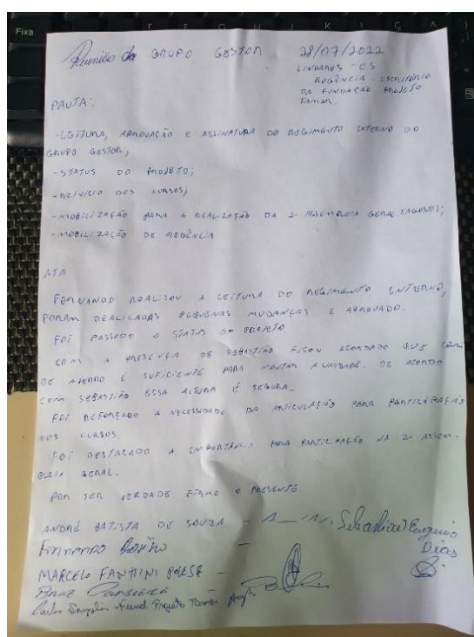 Fixa
Reunião do GRUPO GESTOR 28/07/2022
LINHARES - ES
REGÊNCIA - ESCRITÓRIO
DA FUNDAÇÃO PROJETO
TAMAR.
PAUTA:
- LEITURA, APROVAÇÃO E ASSINATURA DO REGIMENTO INTERNO DO
GRUPO GESTOR;
- STATUS DO PROJETO;
- REINICIO DOS CURSOS;
- MOBILIZAÇÃO PARA A REALIZAÇÃO DA 2ª ASSEMBLEIA GERAL (AGOSTO);
- MOBILIZAÇÃO DE REGÊNCIA
ATA
FERNANDO REALIZOU A LEITURA DO REGIMENTO INTERNO,
FORAM REALIZADAS PEQUENAS MUDANÇAS E APROVADO.
FOI PASSADO O STATUS DO PROJETO
COM A PRESENÇA DE SEBASTIÃO FICOU ACORDADO QUE
DE ATERRO É SUFICIENTE PARA MONTAR A UNIDADE. DE ACORDO
COM SEBASTIÃO ESSA ALTURA É SEGURA.
FOI REFORÇADO A NECESSIDADE DA ARTICULAÇÃO PARA PARTICIPAÇÃO
NOS CURSOS.
FOI DESTACADO A IMPORTÂNCIA PARA PARTICIPAÇÃO NA 2ª ASSEM-
BLEIA GERAL.
POR SER VERDADE FIRMO O PRESENTE.
ANDRÉ BATISTA DE SOUZA - Sebastião Eugenio
Dias
FERNANDO
MARCELO FANTINI
Carlos Sangalia - Fund. Projeto Tamar